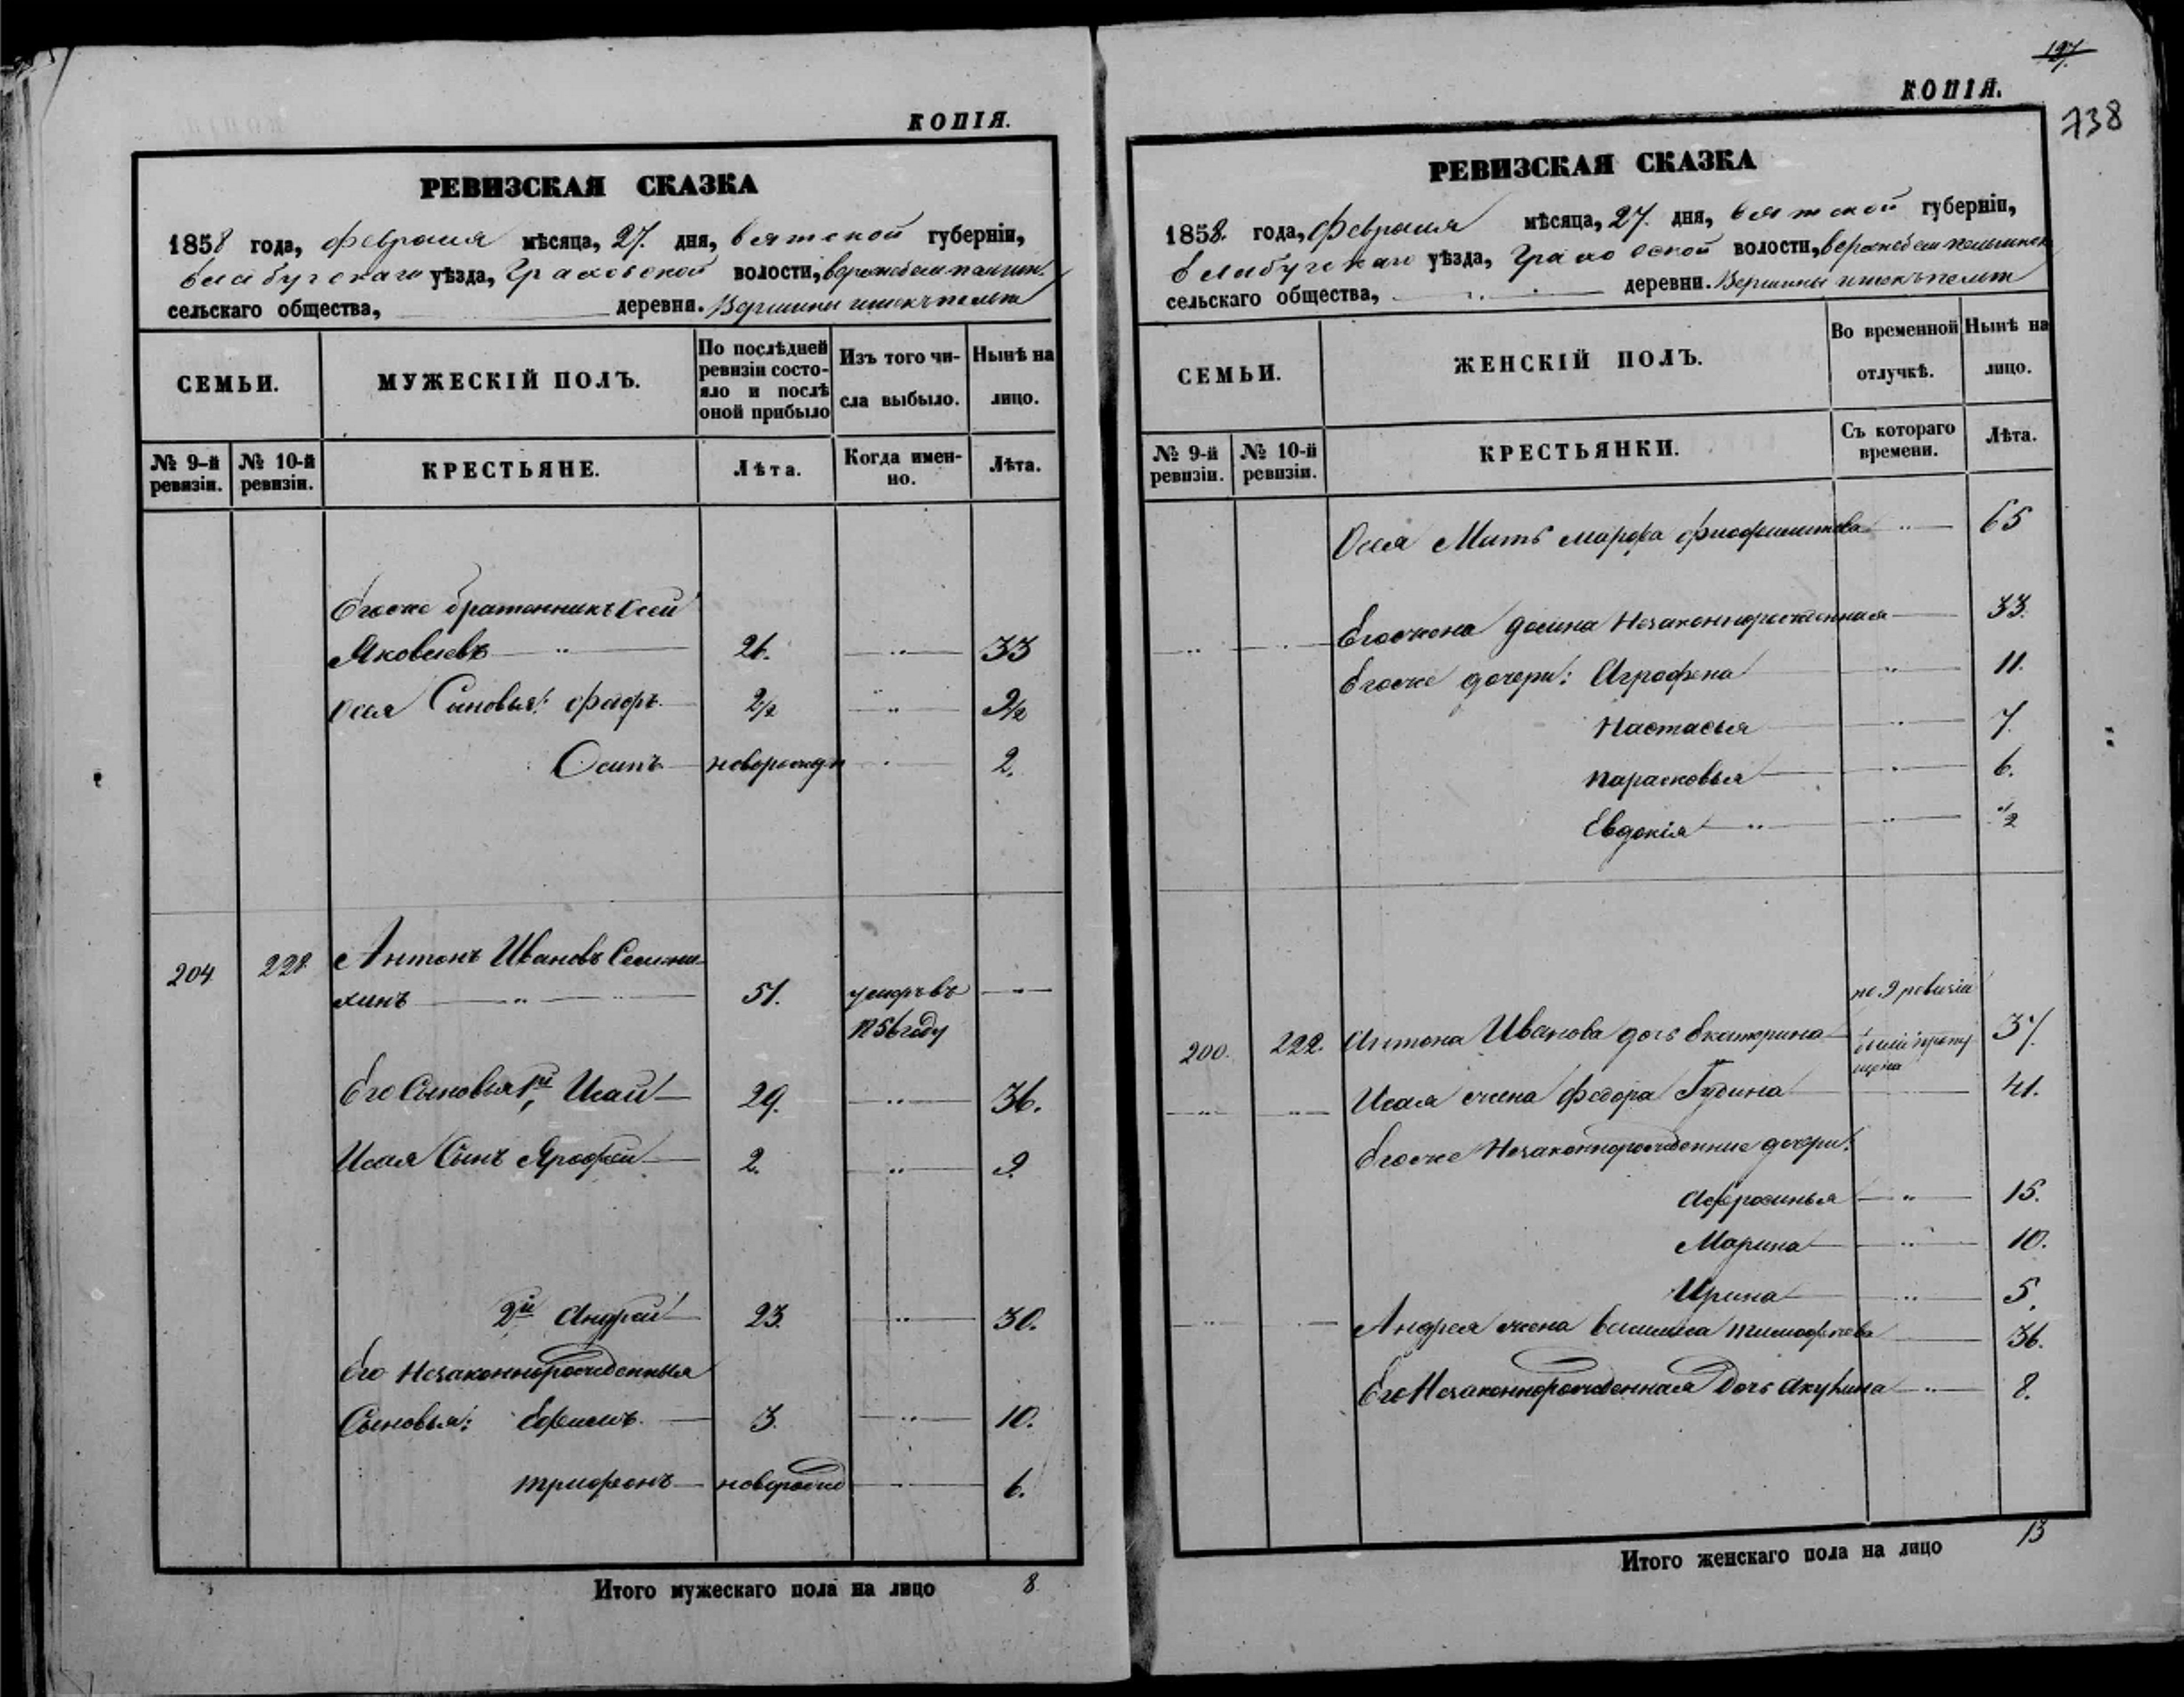 КОПІЯ.
РЕВИЗСКАЯ СКАЗКА
1858 года, февраля мѣсяца, 27. дня, вятской губерніи,
елабугскаго уѣзда, Граховской волости,
сельскаго общества, деревни. Вершины
СЕМЬИ.
МУЖЕСКІЙ ПОЛЪ.
По послѣдней ревизіи состояло и послѣ оной прибыло
Изъ того числа выбыло.
Нынѣ на лицо.
№ 9-й ревизіи.
№ 10-й ревизіи.
КРЕСТЬЯНЕ.
Лѣта.
Когда именно.
Лѣта.
Егоже братенникъ Осей
Яковлевъ 26. 33
Осея Сыновья: Федоръ 2/2 9/2
Осипъ новорожд 2.
204 228. Антонъ Ивановъ
хинъ 51. умеръ въ
1856 году
Его Сыновья 1й Исай 29. 36.
Исая Сынъ Ярофей 2. 9
2й Андрей 23. 30.
Его Незаконнорожденныя
Сыновья: Ефимъ 3. 10.
Трифонъ новорожд 6.
Итого мужескаго пола на лицо 8
127.
КОПІЯ.
738
РЕВИЗСКАЯ СКАЗКА
1858. года, Февраля мѣсяца, 27. дня, вятской губерніи,
Елабугскаго уѣзда, Граховской волости,
сельскаго общества, деревни. Вершины
СЕМЬИ.
ЖЕНСКІЙ ПОЛЪ.
Во временной отлучкѣ.
Нынѣ на лицо.
№ 9-й ревизіи.
№ 10-й ревизіи.
КРЕСТЬЯНКИ.
Съ котораго времени.
Лѣта.
Осея Мать марфа 65
Егожена Незаконнорожденная 33.
Егоже дочери: Агрофена 11.
Настасья 7.
парасковья 6.
Евдокія 1/2
по 9 ревизіи
200. 222. Антона Иванова дочь Екатерина 37.
Исая жена Федора 41.
Егоже Незаконнорожденние дочери:
Афросинья 15.
Марина 10.
Ирина 5.
Андрея жена Василиса тимофеева 36.
Его Незаконнорожденная Дочь Акулина 8.
Итого женскаго пола на лицо 13